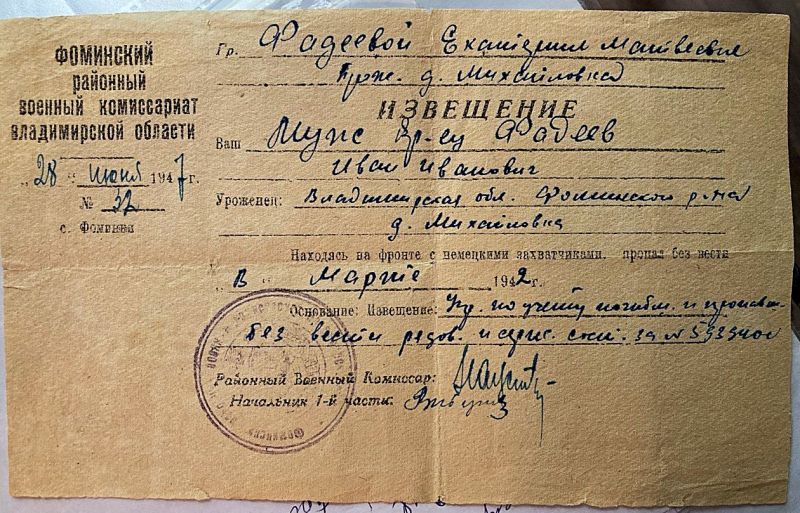 ФОМИНСКИЙ
районный
военный комиссариат
владимирской области
„28 “ июня 1947 г.
№ 32
с. Фоминки
Гр. Фадеевой Екатерине Матвеевне
Прож. д. Михайловка
ИЗВЕЩЕНИЕ
Ваш Муж кр-ец Фадеев
Иван Иванович
Уроженец: Владимирская обл. Фоминского р-на
д. Михайловка
Находясь на фронте с немецкими захватчиками. пропал без вести
„В “ Марте 1942 г.
Основание: Извещение: Упр. по учету погибш. и пропавш.
без вести рядов. и серж. сост. за №
Районный Военный Комиссар:
Начальник 1-й части: